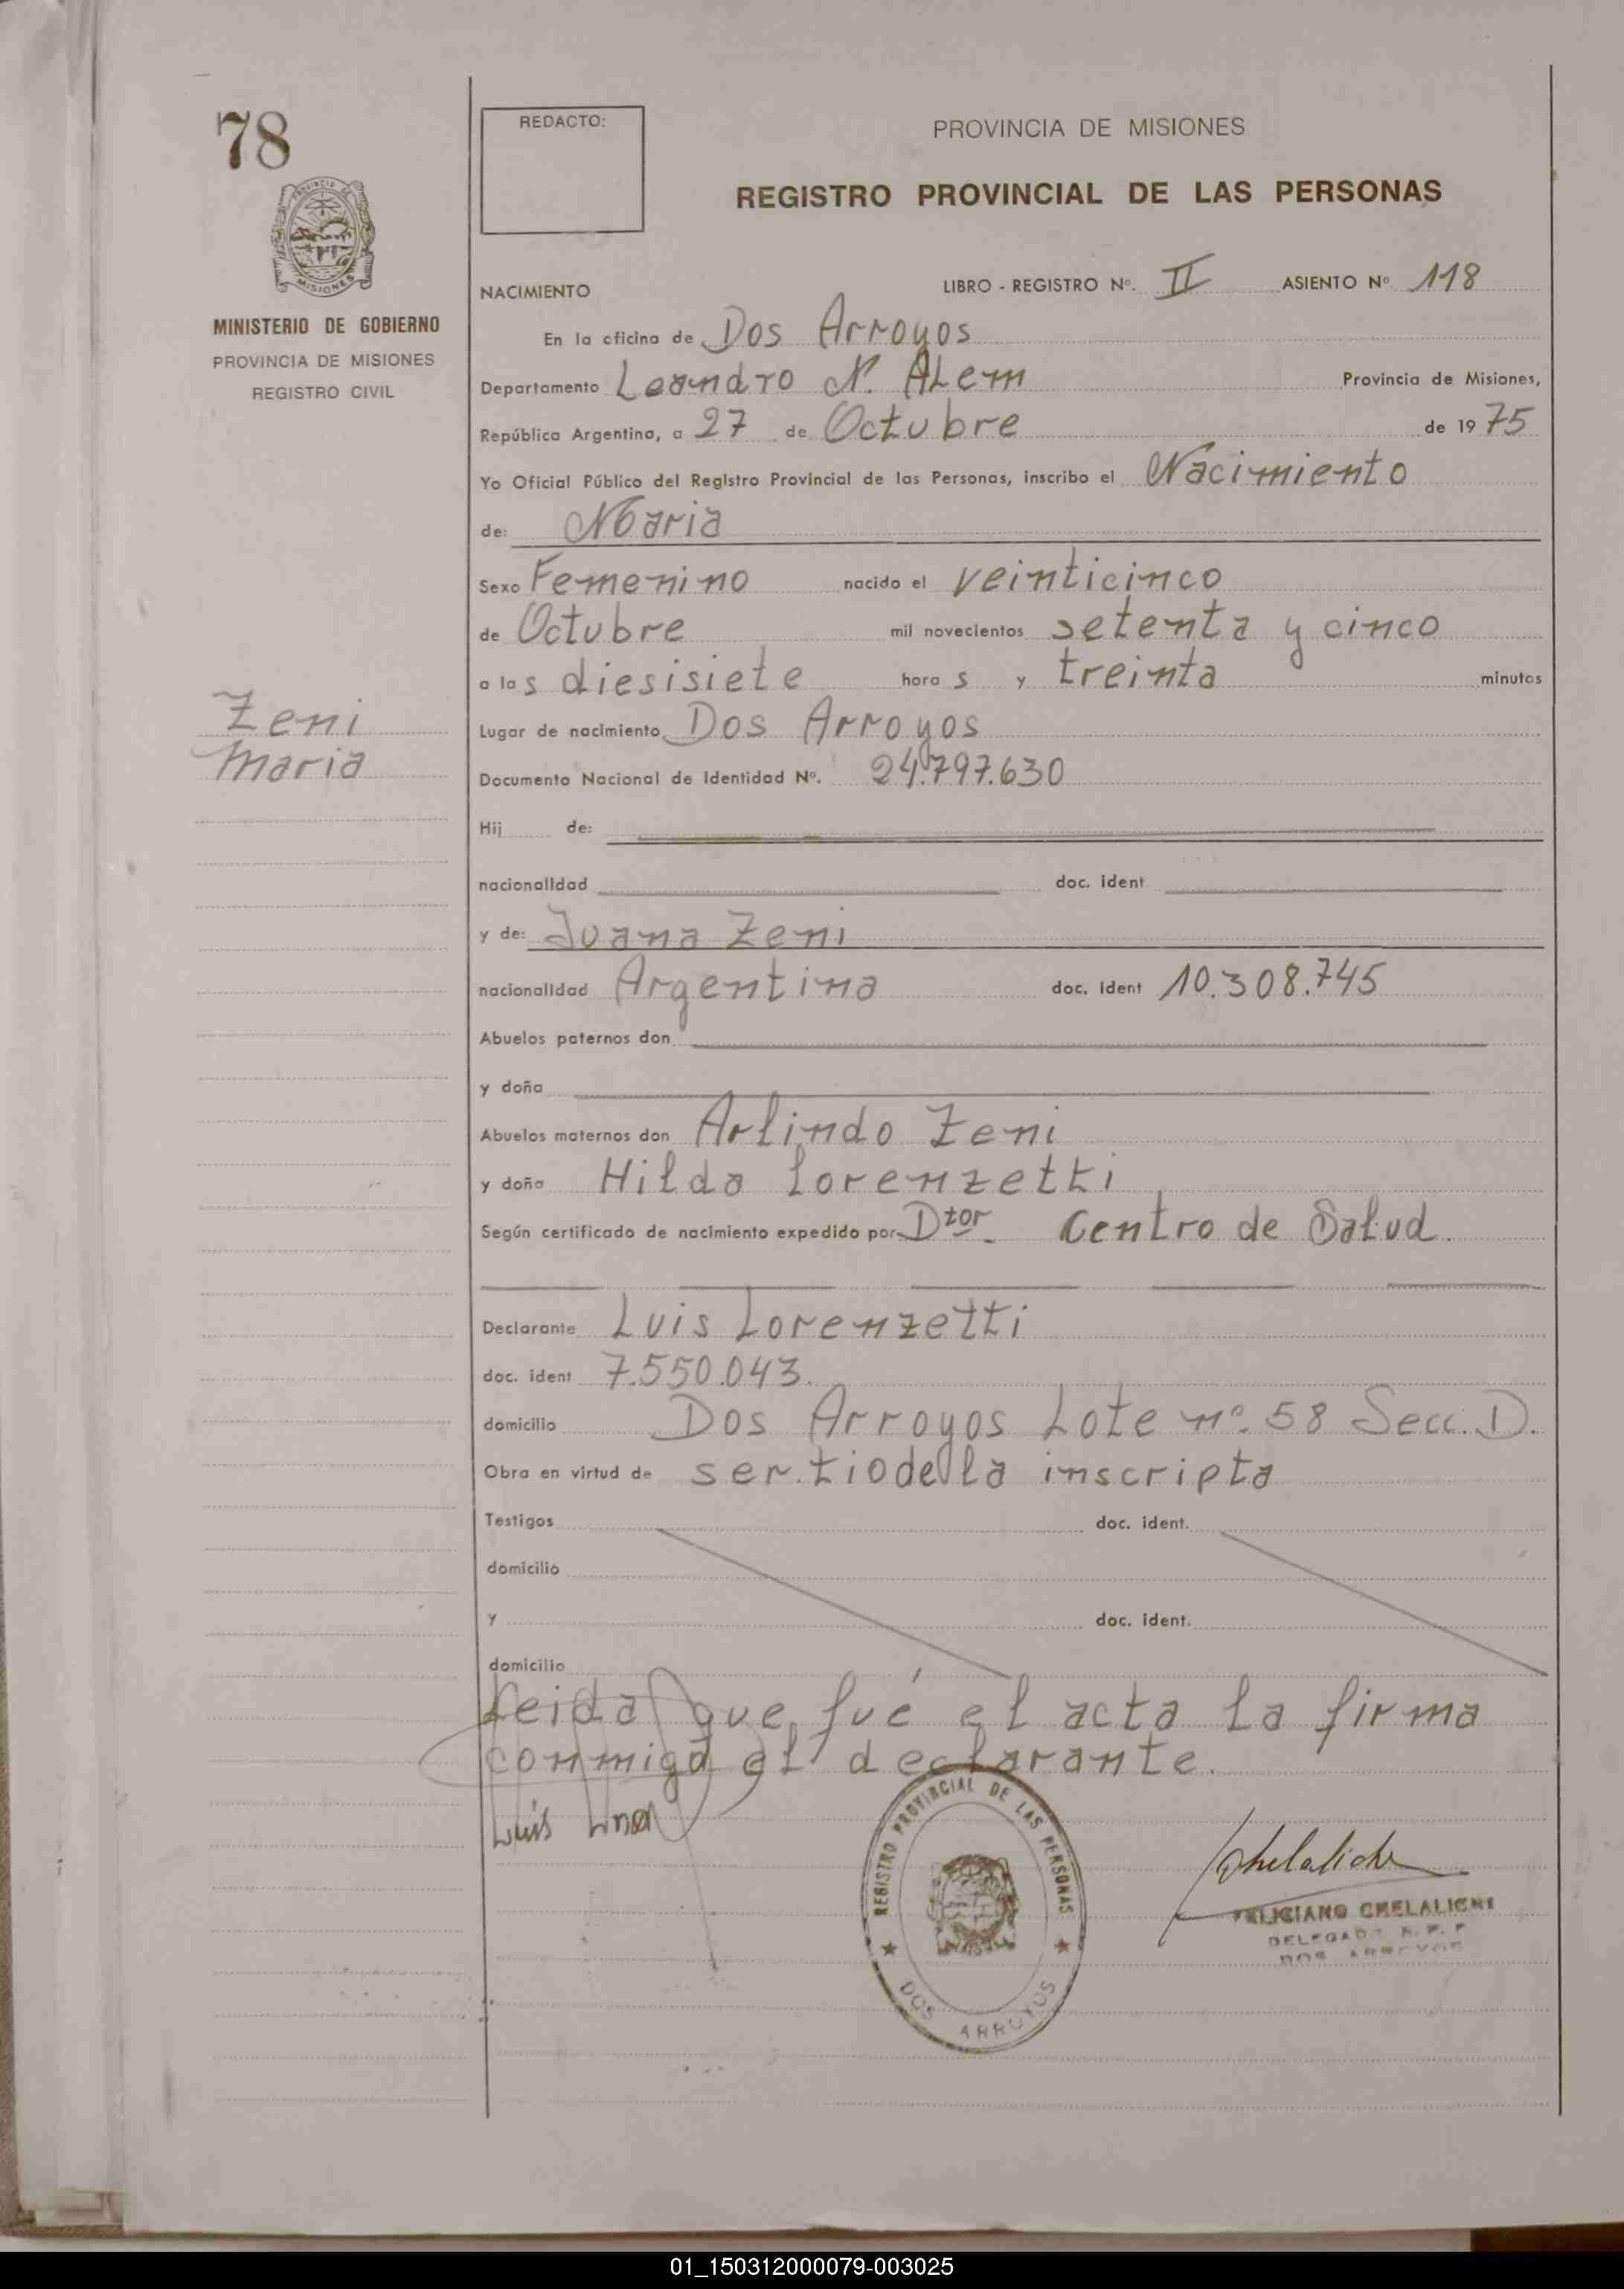 78
REDACTO:
PROVINCIA DE MISIONES
REGISTRO PROVINCIAL DE LAS PERSONAS
PROVINCIA DE
MISIONES
MINISTERIO DE GOBIERNO
PROVINCIA DE MISIONES
REGISTRO CIVIL
NACIMIENTO LIBRO - REGISTRO Nº. II ASIENTO Nº 118
En la oficina de Dos Arroyos
Departamento Leandro N. ALem Provincia de Misiones,
República Argentina, a 27 de Octubre de 1975
Yo Oficial Público del Registro Provincial de las Personas, inscribo el Nacimiento
de: Maria
Sexo Femenino nacido el veinticinco
de Octubre mil novecientos setenta y cinco
a las diesisiete horas y treinta minutos
Zeni
Maria
Lugar de nacimiento Dos Arroyos
Documento Nacional de Identidad Nº. 24.797.630
Hij de:
nacionalidad doc. ident
y de: Juana Zeni
nacionalidad Argentina doc. ident 10.308.745
Abuelos paternos don
y doña
Abuelos maternos don Arlindo Zeni
y doña Hilda Lorenzetti
Según certificado de nacimiento expedido por Dtor. Centro de Salud.
Declarante Luis Lorenzetti
doc. ident 7.550.043.
domicilio Dos Arroyos Lote nº. 58 Secc. D.
Obra en virtud de ser tio de la inscripta
Testigos doc. ident.
domicilio
y doc. ident.
domicilio
Leida que fué el acta la firma
conmigo el declarante.
Luis
REGISTRO PROVINCIAL DE LAS PERSONAS
DOS ARROYOS
Chelaliche
FELICIANO CHELALICHE
DELEGADO R. P. P
DOS ARROYOS
01_150312000079-003025